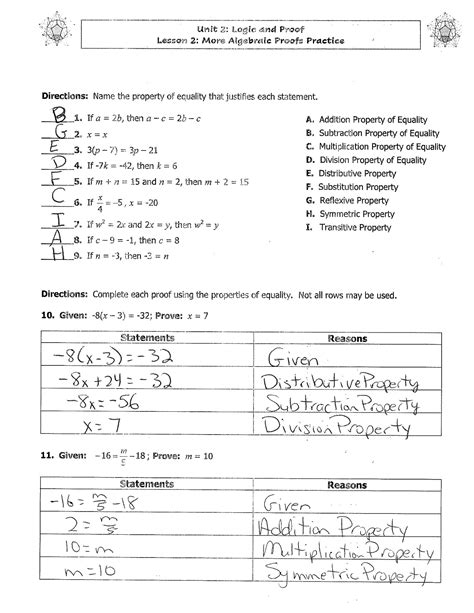 Unit 2: Logic and Proof
Lesson 2: More Algebraic Proofs Practice
Directions: Name the property of equality that justifies each statement.
B 1. If a = 2b, then a – c = 2b – c
G 2. x = x
E 3. 3(p – 7) = 3p – 21
D 4. If -7k = -42, then k = 6
F 5. If m + n = 15 and n = 2, then m + 2 = 15
C 6. If x/4 = -5, x = -20
I 7. If w² = 2x and 2x = y, then w² = y
A 8. If c – 9 = -1, then c = 8
H 9. If n = -3, then -3 = n
A. Addition Property of Equality
B. Subtraction Property of Equality
C. Multiplication Property of Equality
D. Division Property of Equality
E. Distributive Property
F. Substitution Property
G. Reflexive Property
H. Symmetric Property
I. Transitive Property
Directions: Complete each proof using the properties of equality. Not all rows may be used.
10. Given: -8(x – 3) = -32; Prove: x = 7
Statements Reasons
-8(x-3) = -32 Given
-8x + 24 = -32 Distributive Property
-8x = -56 Subtraction Property
x = 7 Division Property
11. Given: -16 = m/5 – 18; Prove: m = 10
Statements Reasons
-16 = m/5 - 18 Given
2 = m/5 Addition Property
10 = m Multiplication Property
m = 10 Symmetric Property